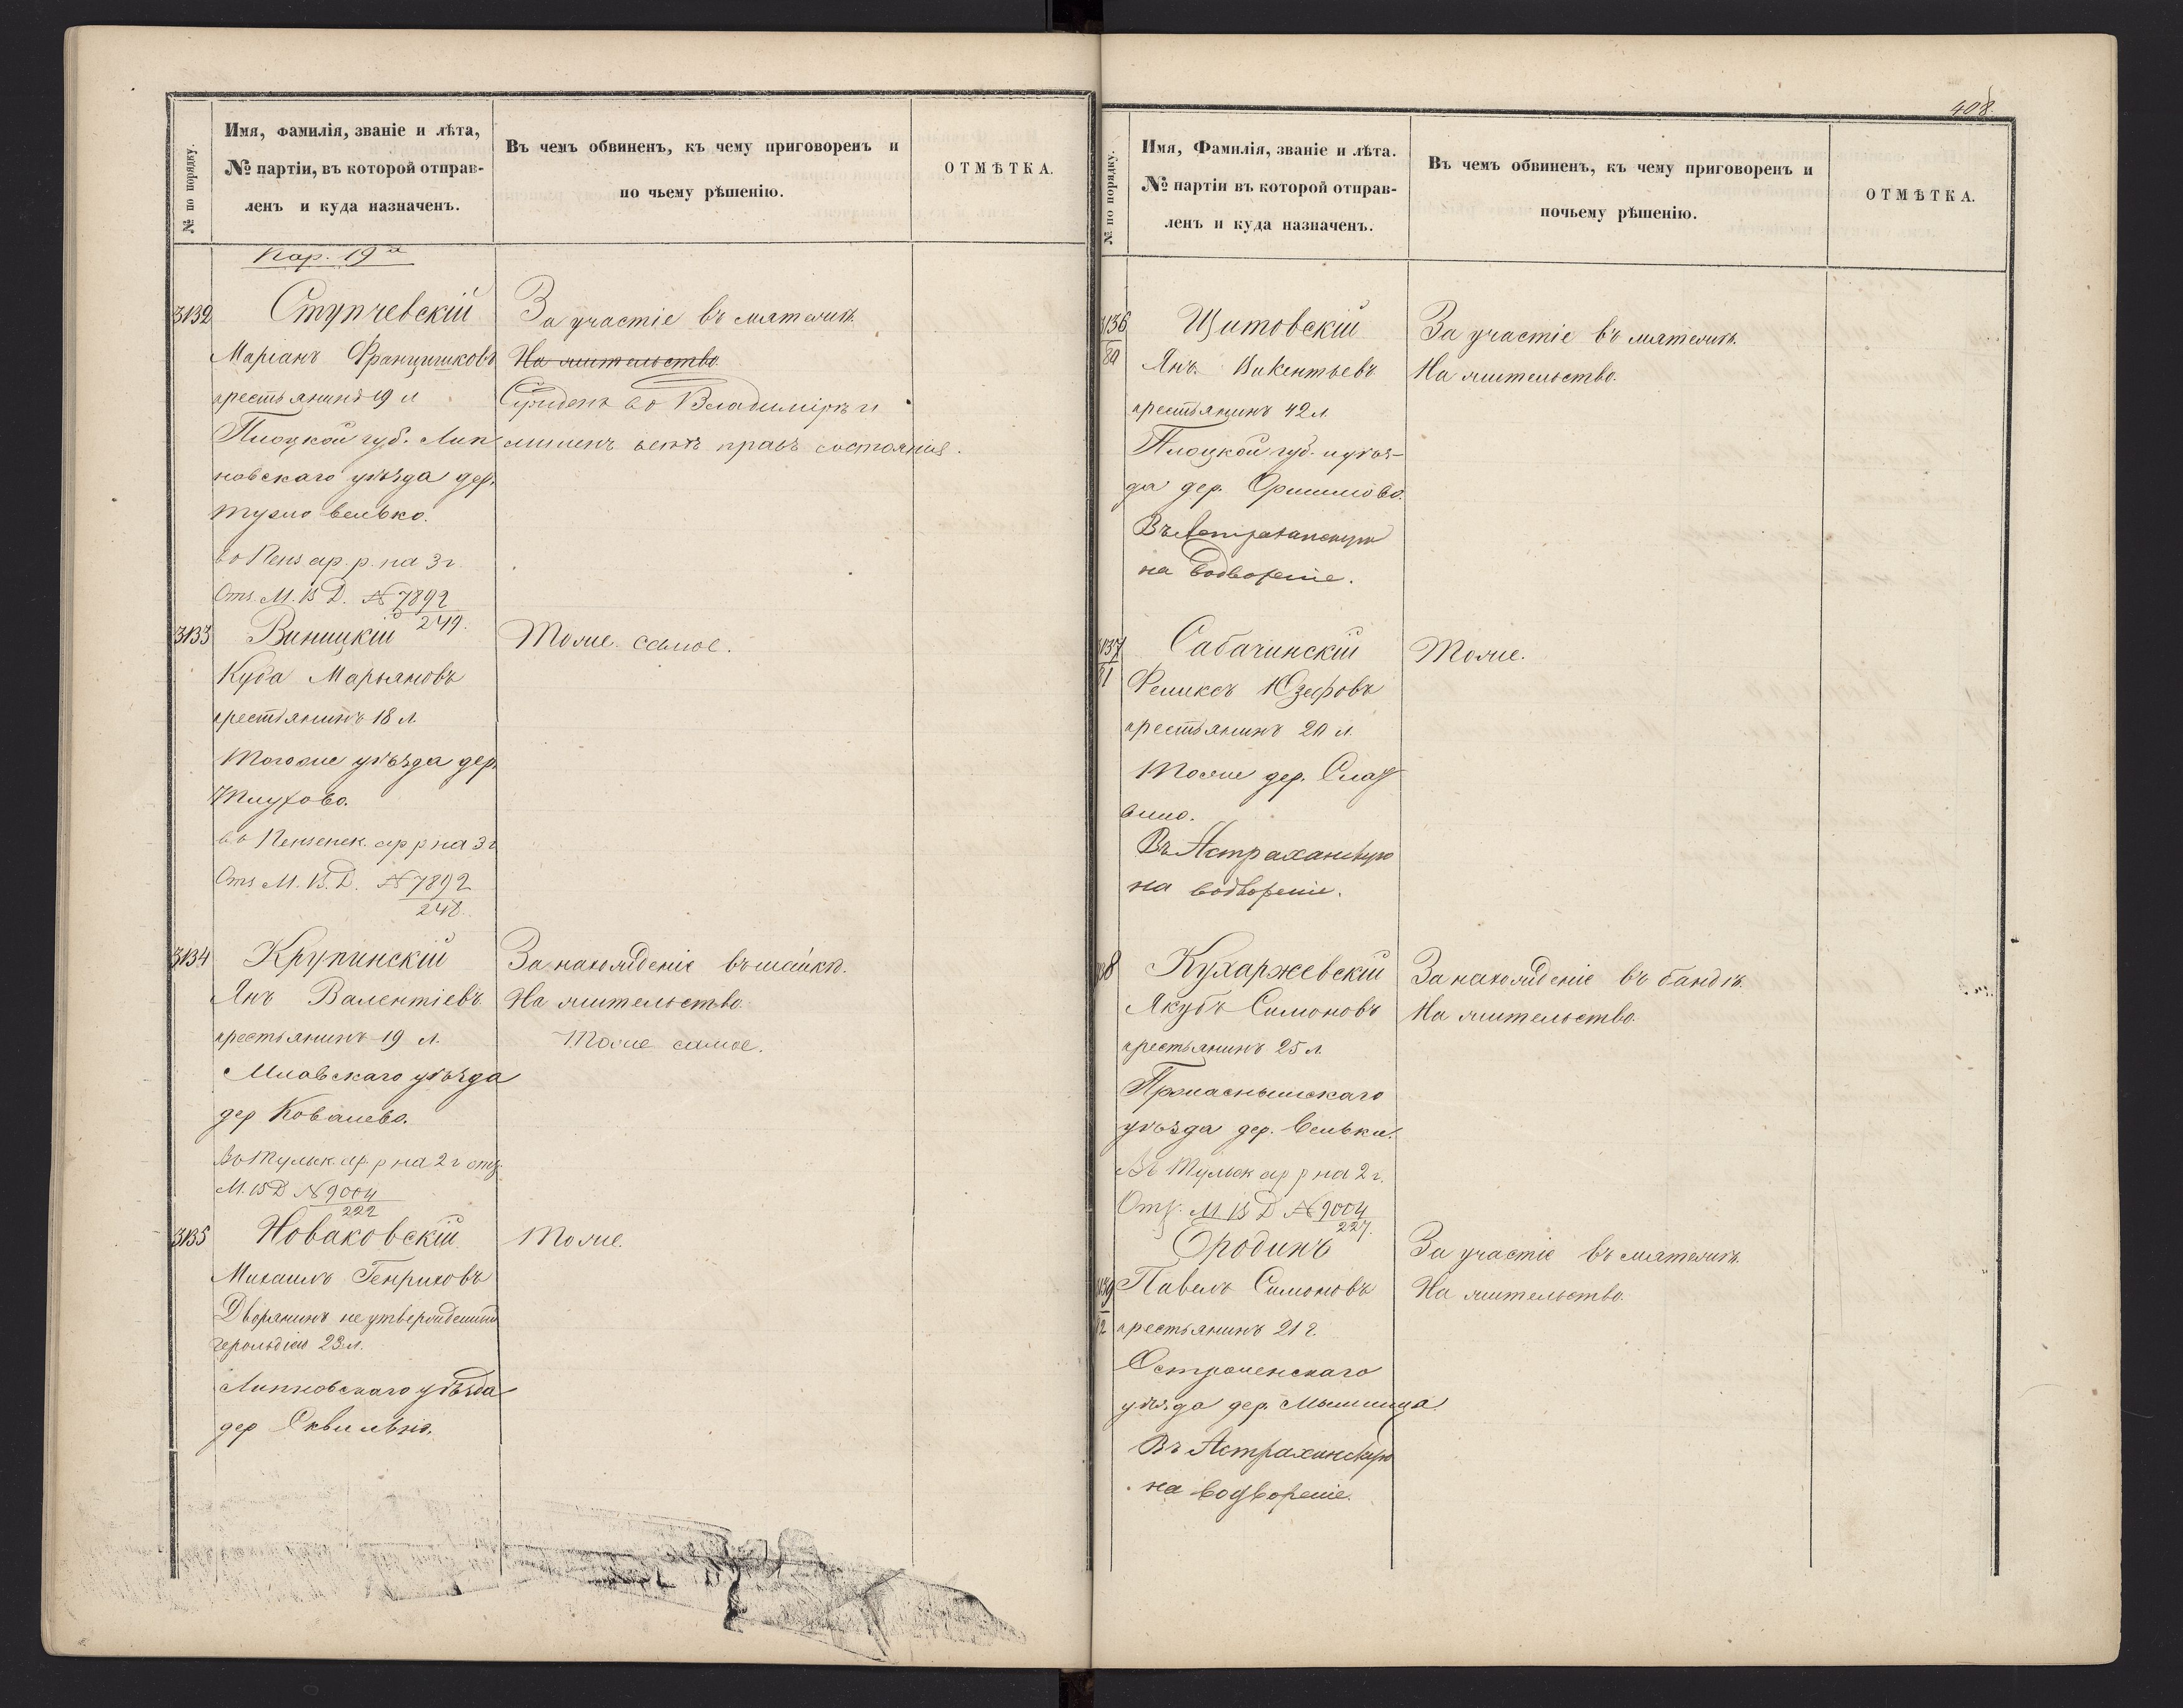 № по порядку.
Имя, фамилія, званіе и лѣта,
№ партіи, въ которой отправ-
ленъ и куда назначенъ.
Въ чемъ обвиненъ, къ чему приговоренъ и
по чьему рѣшенію.
ОТМѢТКА.
Пар. 19я
3132
Ступчевскій
Маріанъ Францишковъ
крестьянинъ 19 л
Плоцкой губ. Лип
новскаго уѣзда дер.
Тузно велько.
во Пенз. ар. р. на 3 г.
Отз. М. В. Д. № 7892
249.
За участіе въ мятежѣ.
На жительство.
Сужденъ во Владимірѣ и
лишенъ всѣхъ правъ состоянія.
3133
Виницкій
Куба Марьяновъ
крестьянинъ 18 л.
Тогоже уѣзда дер.
Тлухово.
во Пензенск. ар р на 3 г
Отз М. В. Д. № 7892
248.
Тоже самое.
3134
Крупинскій
Янъ Валентіевъ
крестьянинъ 19 л.
Млавскаго уѣзда
дер Ковалево.
Во Тульск. ар. р на 2 г отз.
М. В Д № 9004
222
За нахожденіе въ шайкѣ.
На жительство.
Тоже самое.
3135
Новаковскій
Михаилъ Генриховъ
Дворянинъ не утвержденный
герольдіей 23 л.
Липновскаго уѣзда
дер Сквильно.
Тоже.
408.
№ по порядку.
Имя, Фамилія, званіе и лѣта.
№ партіи въ которой отправ-
ленъ и куда назначенъ.
Въ чемъ обвиненъ, къ чему приговоренъ и
почьему рѣшенію.
ОТМѢТКА.
3136
80
Щитовскій
Янъ Викентьевъ
крестьянинъ 42 л.
Плоцкой губ. и уѣз-
да дер. Оршимово.
Въ Астраханскую
на водвореніе.
За участіе въ мятежѣ.
На жительство.
3137
81
Сабачинскій
Феликсъ Юзефовъ
крестьянинъ 20 л.
Тоже дер.
Въ Астраханскую
на водвореніе.
Тоже.
Кухаржевскій
Якубъ Симоновъ
крестьянинъ 25 л.
Пржаснышскаго
уѣзда дер. Вельки.
Въ Тульск ар р на 2 г.
Отз. М В Д № 9004
227.
За нахожденіе въ бандѣ.
На жительство.
Ородинъ
Павелъ Симоновъ
крестьянинъ 21 г.
Остроленскаго
уѣзда дер. Мышинца.
Въ Астраханскую
на водвореніе.
За участіе въ мятежѣ.
На жительство.